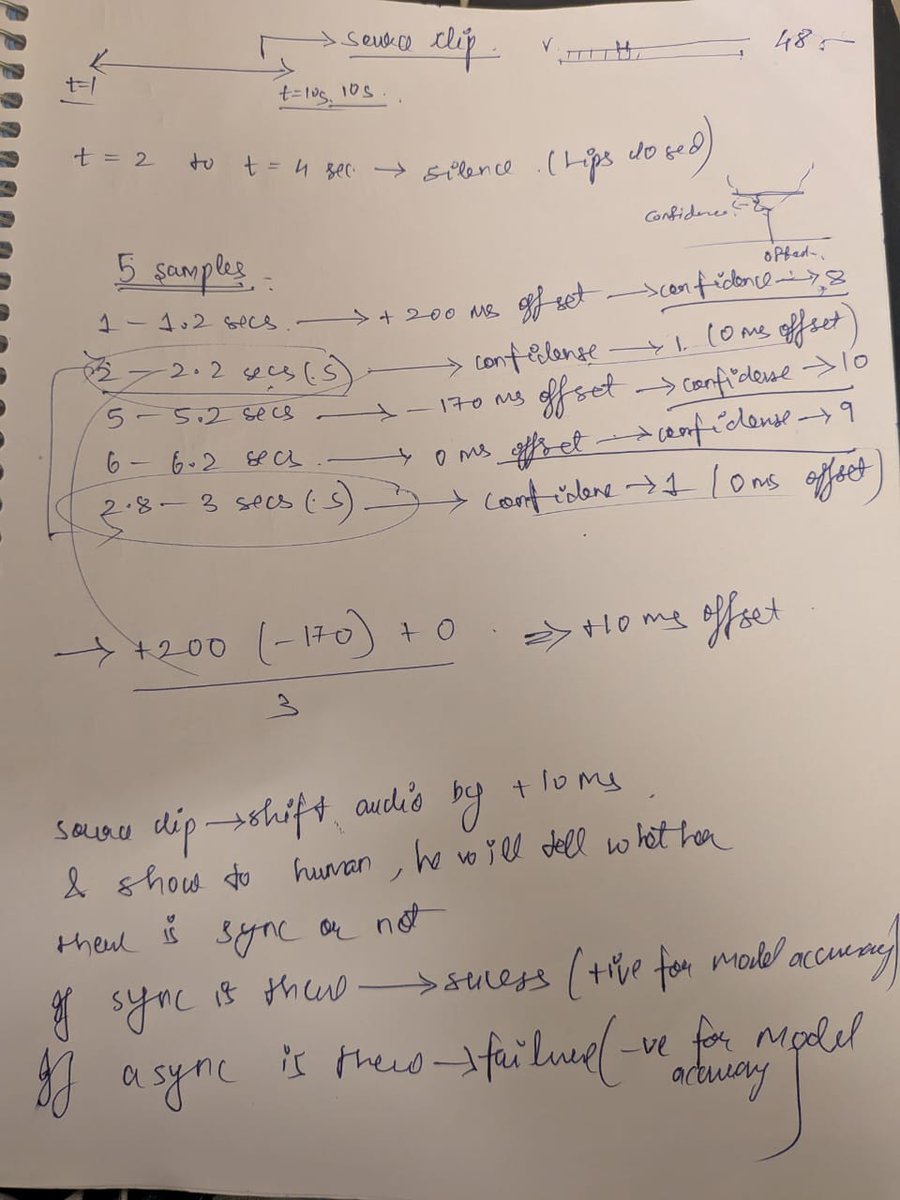 → source clip. V. 48
t=1 t=10s, 10s.
t = 2 to t = 4 sec. → silence. (Lips closed)
confidence.
offset.
5 samples :
1 – 1.2 secs. → + 200 ms offset → confidence → 8
2 – 2.2 secs (.5) → confidense → 1. (0 ms offset)
5 – 5.2 secs → – 170 ms offset → confidense → 10
6 – 6.2 secs. → 0 ms offset → confidense → 9
2.8 – 3 secs (.5) → confidene → 1 (0 ms offset)
→ +200 (–170) + 0 . ⇒ +10 ms offset
3
source clip → shift audio by + 10 ms.
& show to human, he will tell whether
there is sync or not
If sync is there → sucess (+ive for model accuracy)
If async is there → failure (–ve for model
accuracy